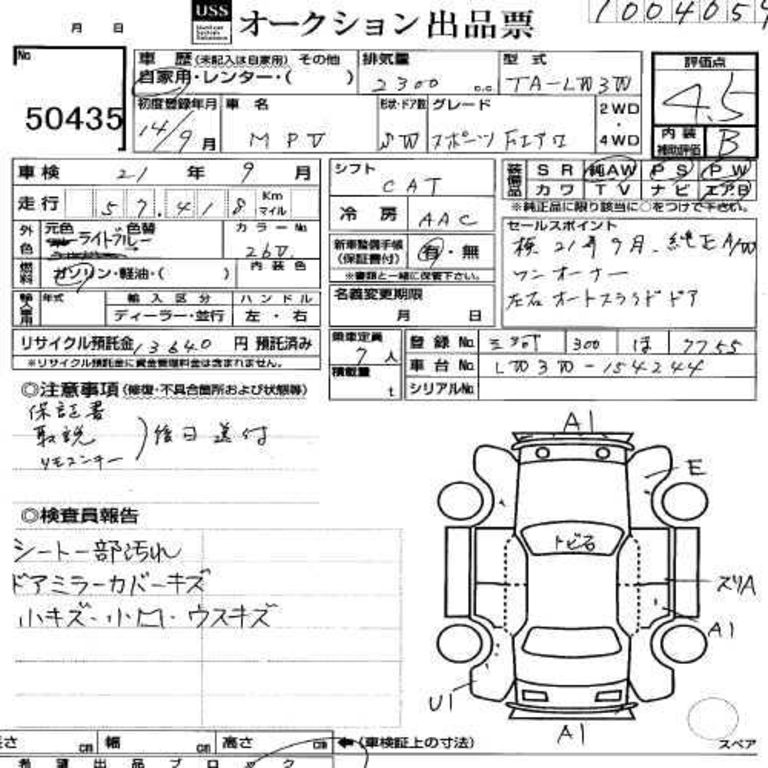 月 日 USS オークション出品票
No 50435
車 歴 (未記入は自家用) その他
自家用・レンター・( )
排気量 2300 c.c
型 式 TA-LW3W
評価点 4.5
初度登録年月 14/9 月
車 名 MPV
形状・ドア数 SW
グレード スポーツ Fエアロ
2WD・4WD
内装補助評価 B
車 検 21 年 9 月
シフト CAT
装備品 SR 純AW PS PW
カワ TV ナビ エアB
※純正品に限り該当に○をつけて下さい。
走行 57.418 Km マイル
冷 房 AAC
セールスポイント
検 21年9月. 純正A/W
ワンオーナー
左右オートスライドドア
外色 元色 色替 ライトブルー
カラーNo 26V
新車整備手帳(保証書付) 有・無
※書類と一緒に保管下さい。
燃料 ガソリン・軽油・( )
内 装 色
名義変更期限 月 日
輸入車用 年式 輸 入 区 分 ハ ン ド ル
ディーラー・並行 左・右
リサイクル預託金 13640 円 預託済み
※リサイクル預託金に資金管理料金は含まれません。
乗車定員 7 人
積載量 t
登 録 No. 300 ほ 7755
車 台 No. LW3W-154244
シリアルNo.
◎注意事項 (修復・不具合箇所および状態等)
保証書
取説
リモコンキー
)後日送付
◎検査員報告
シート一部汚れ
ドアミラーカバーキズ
小キズ・小凹・ウスキズ
A1
E
トビ石
スリA
A1
U1
A1
スペア
長さ cm 幅 cm 高さ cm ←(車検証上の寸法)
希 望 出 品 ブ ロ ッ ク